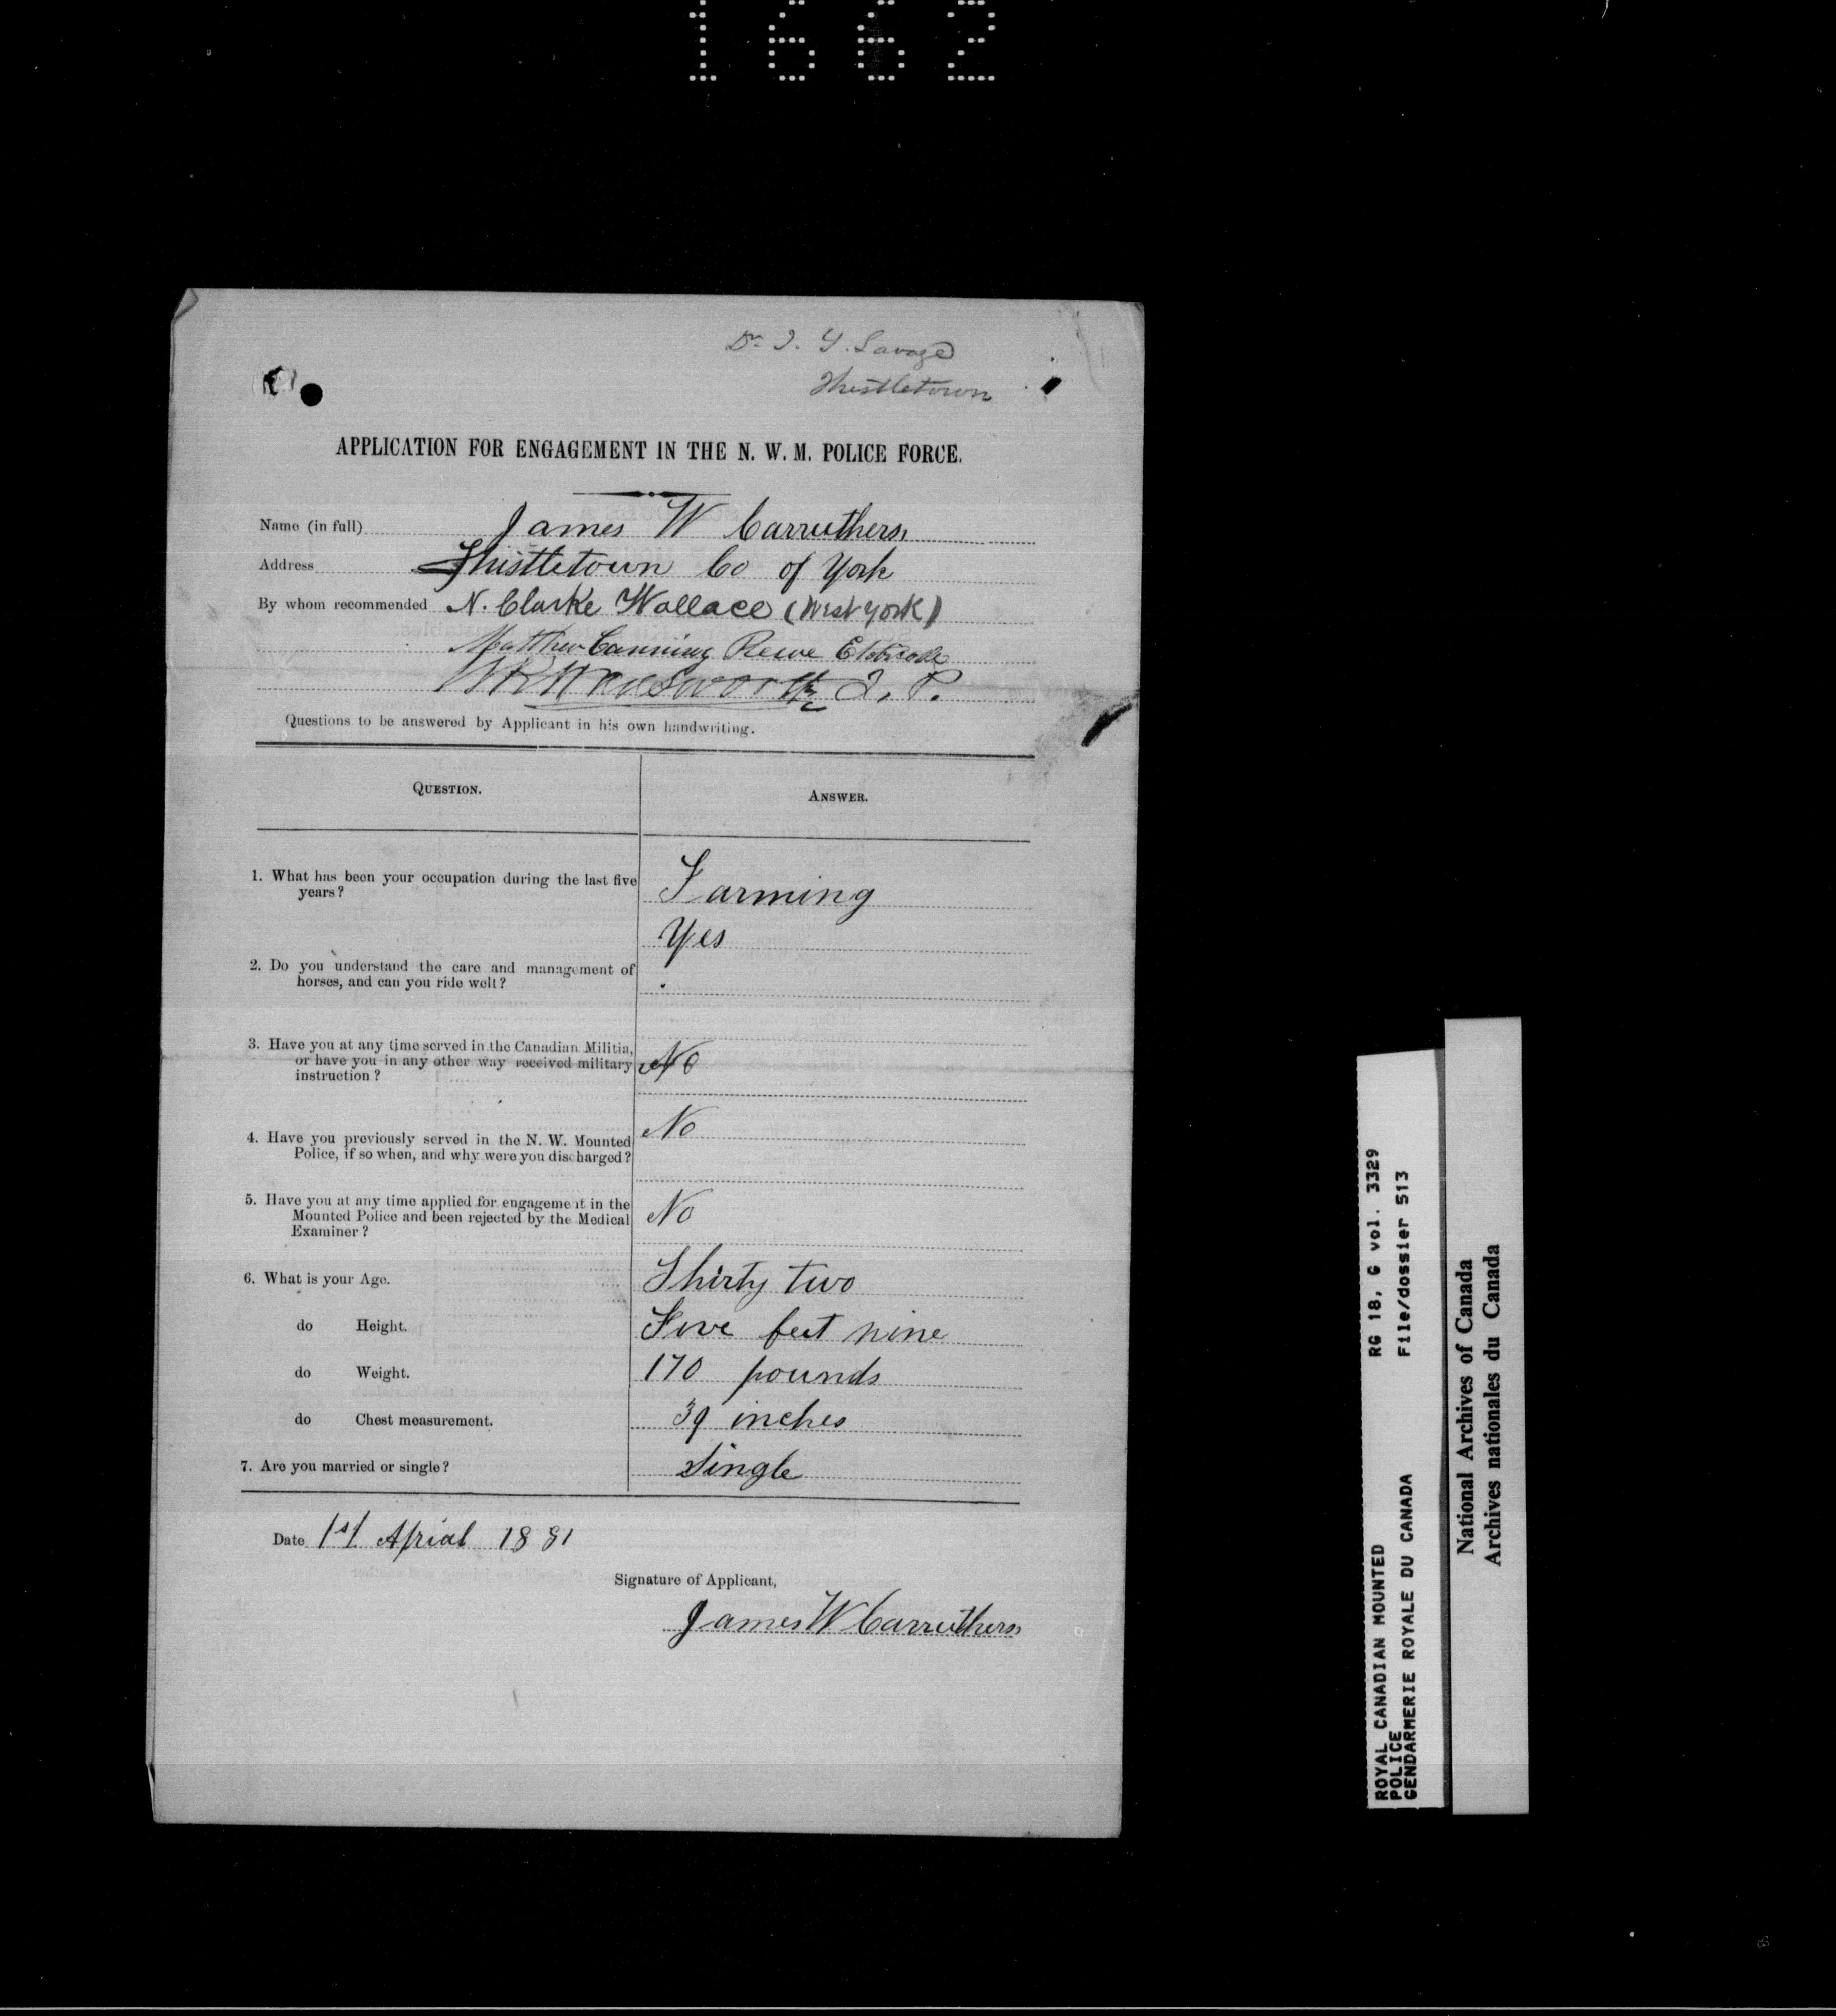 1662
Dr I. G. Savage
Thistletown
APPLICATION FOR ENGAGEMENT IN THE N. W. M. POLICE FORCE.
Name (in full) James W Carruthers
Address Thistletown Co of York
By whom recommended N. Clarke Wallace (West York)
Matthew Canning Reeve Etobicoke
J. P.
Questions to be answered by Applicant in his own handwriting.
QUESTION. ANSWER.
1. What has been your occupation during the last five
years? Farming
Yes
2. Do you understand the care and management of
horses, and can you ride well?
3. Have you at any time served in the Canadian Militia,
or have you in any other way received military No
instruction?
4. Have you previously served in the N. W. Mounted No
Police, if so when, and why were you discharged?
5. Have you at any time applied for engagement in the
Mounted Police and been rejected by the Medical No
Examiner?
6. What is your Age. Thirty two
do Height. Five feet nine
do Weight. 170 pounds
do Chest measurement. 39 inches
7. Are you married or single? Single
Date 1st Aprial 1881
Signature of Applicant,
James W Carruthers
ROYAL CANADIAN MOUNTED RG 18, G vol. 3329
POLICE
GENDARMERIE ROYALE DU CANADA File/dossier 513
National Archives of Canada
Archives nationales du Canada